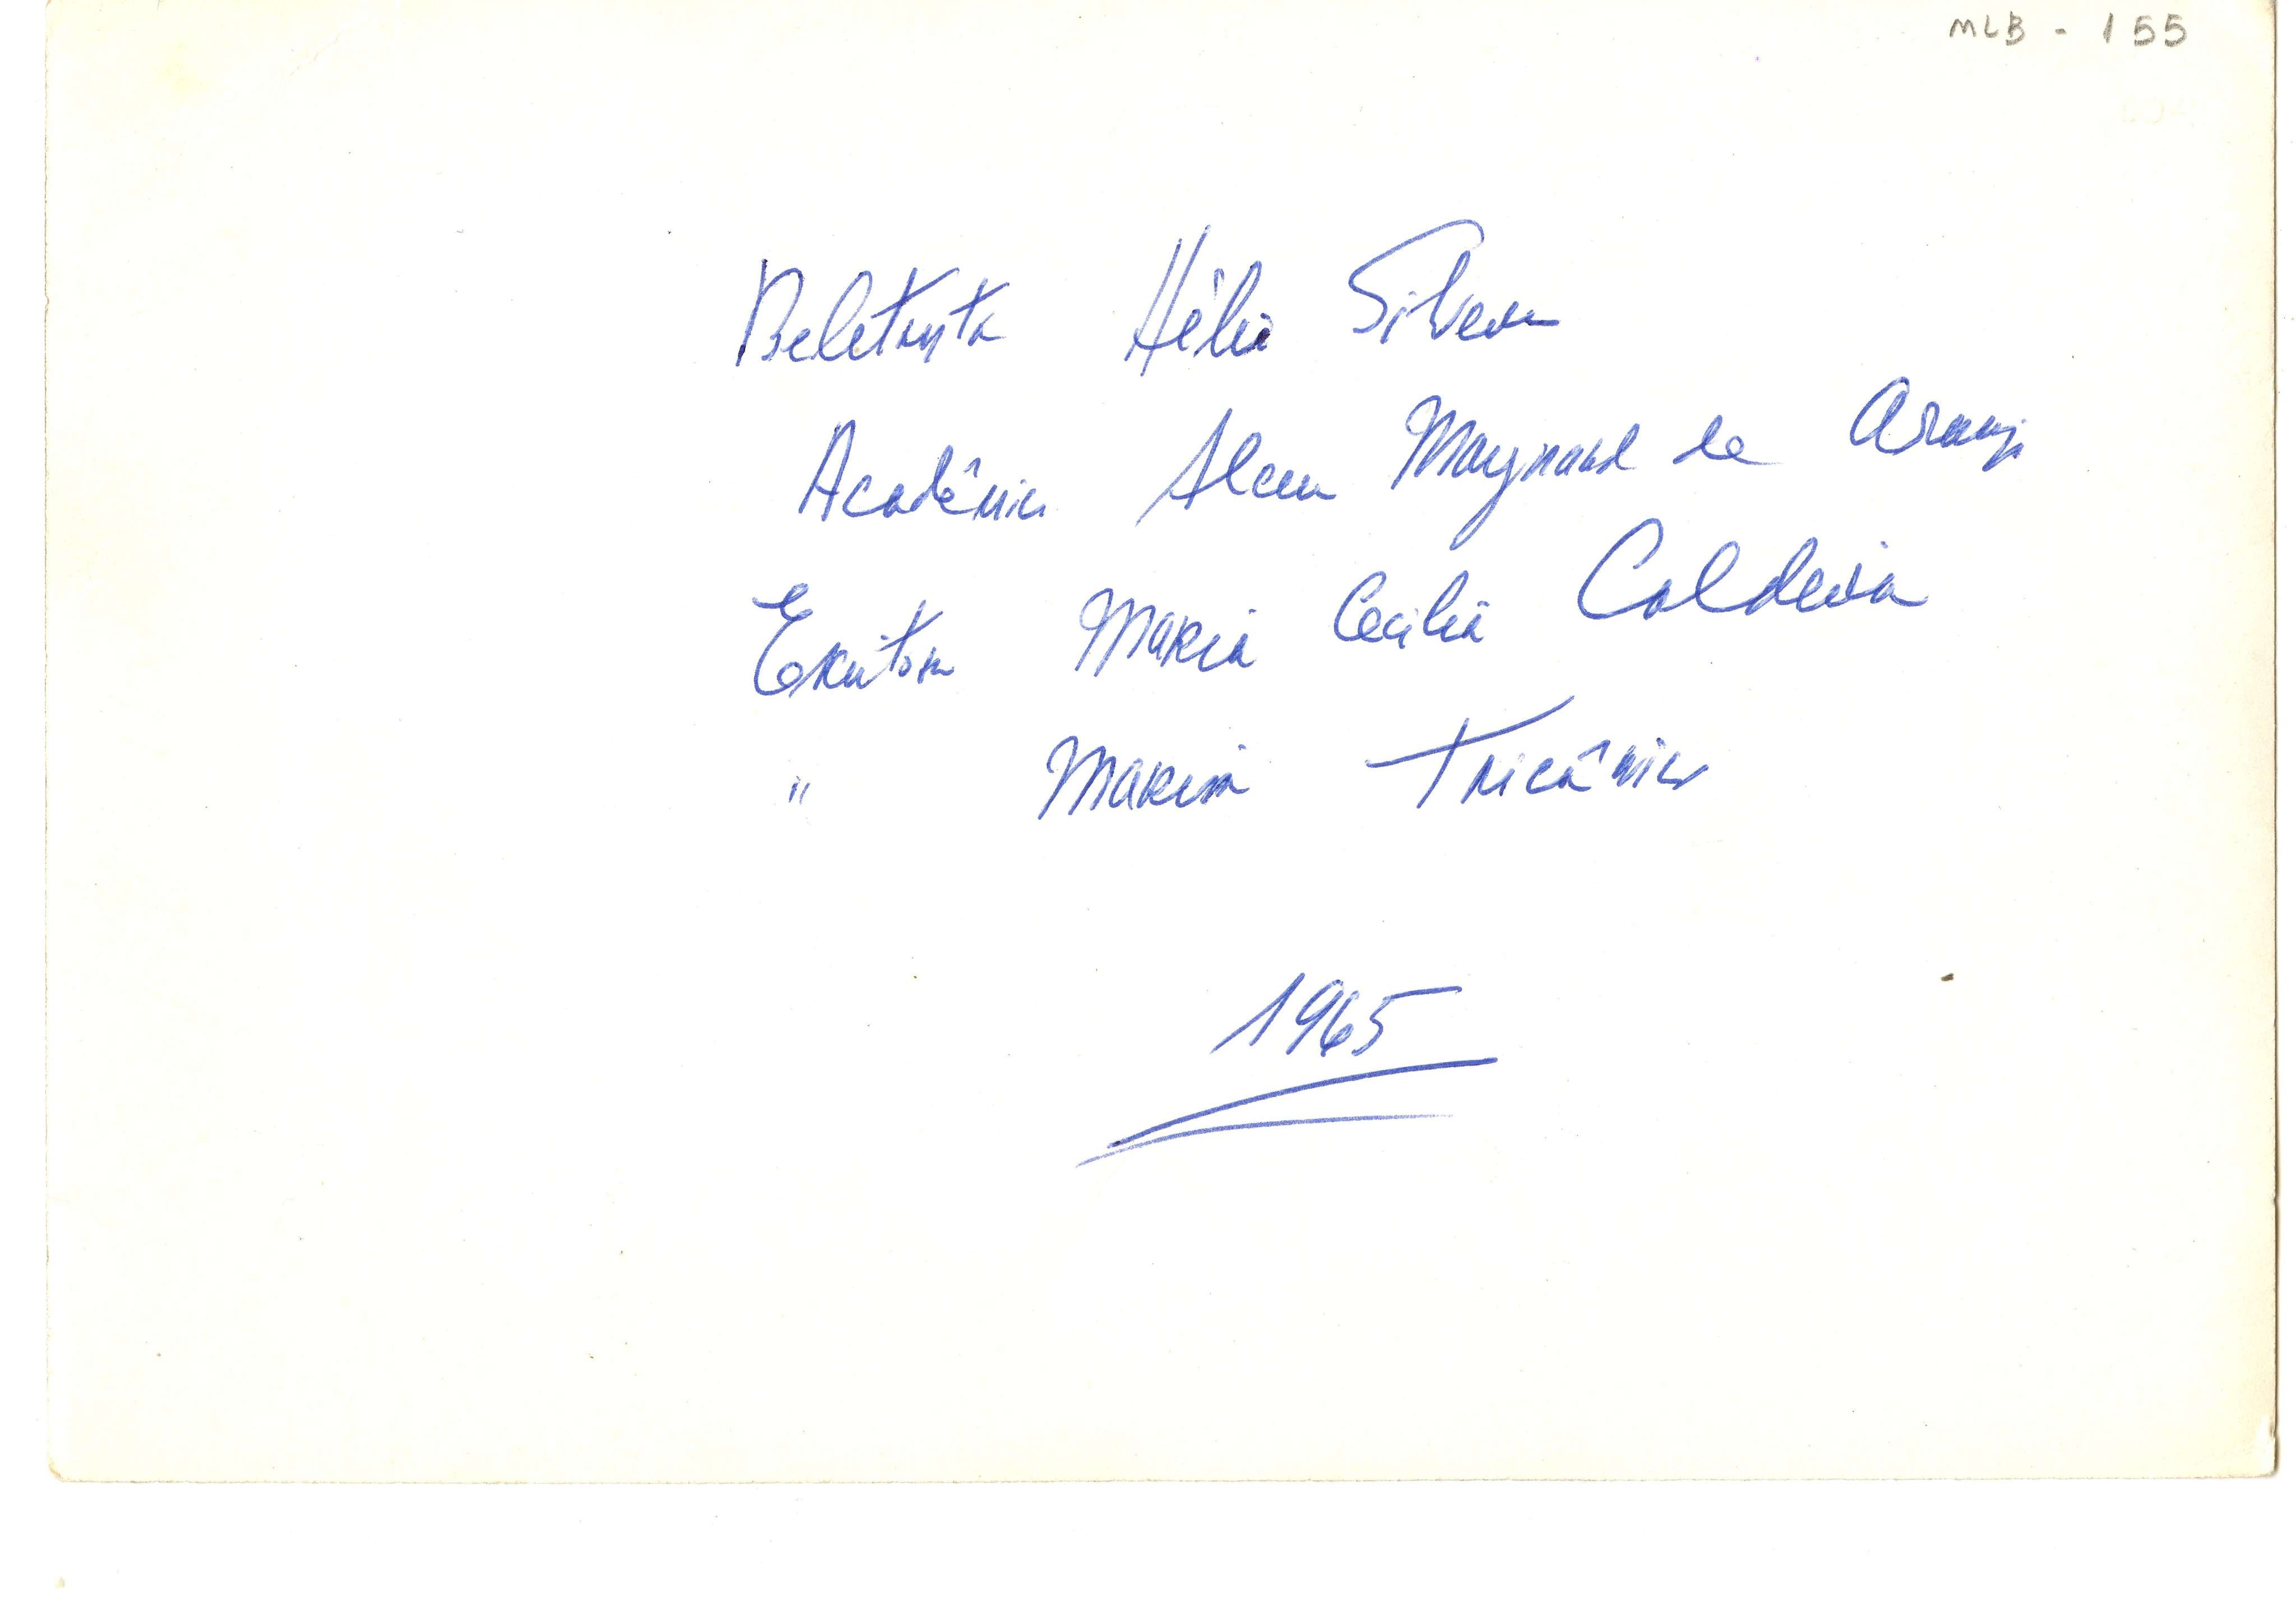 MLB - 155
Beletrista Hélio Silveira
Acadêmico Alceu Maynard de Araujo
Escritora Maria Cecília Caldeira
" Maria Tricânico
1965